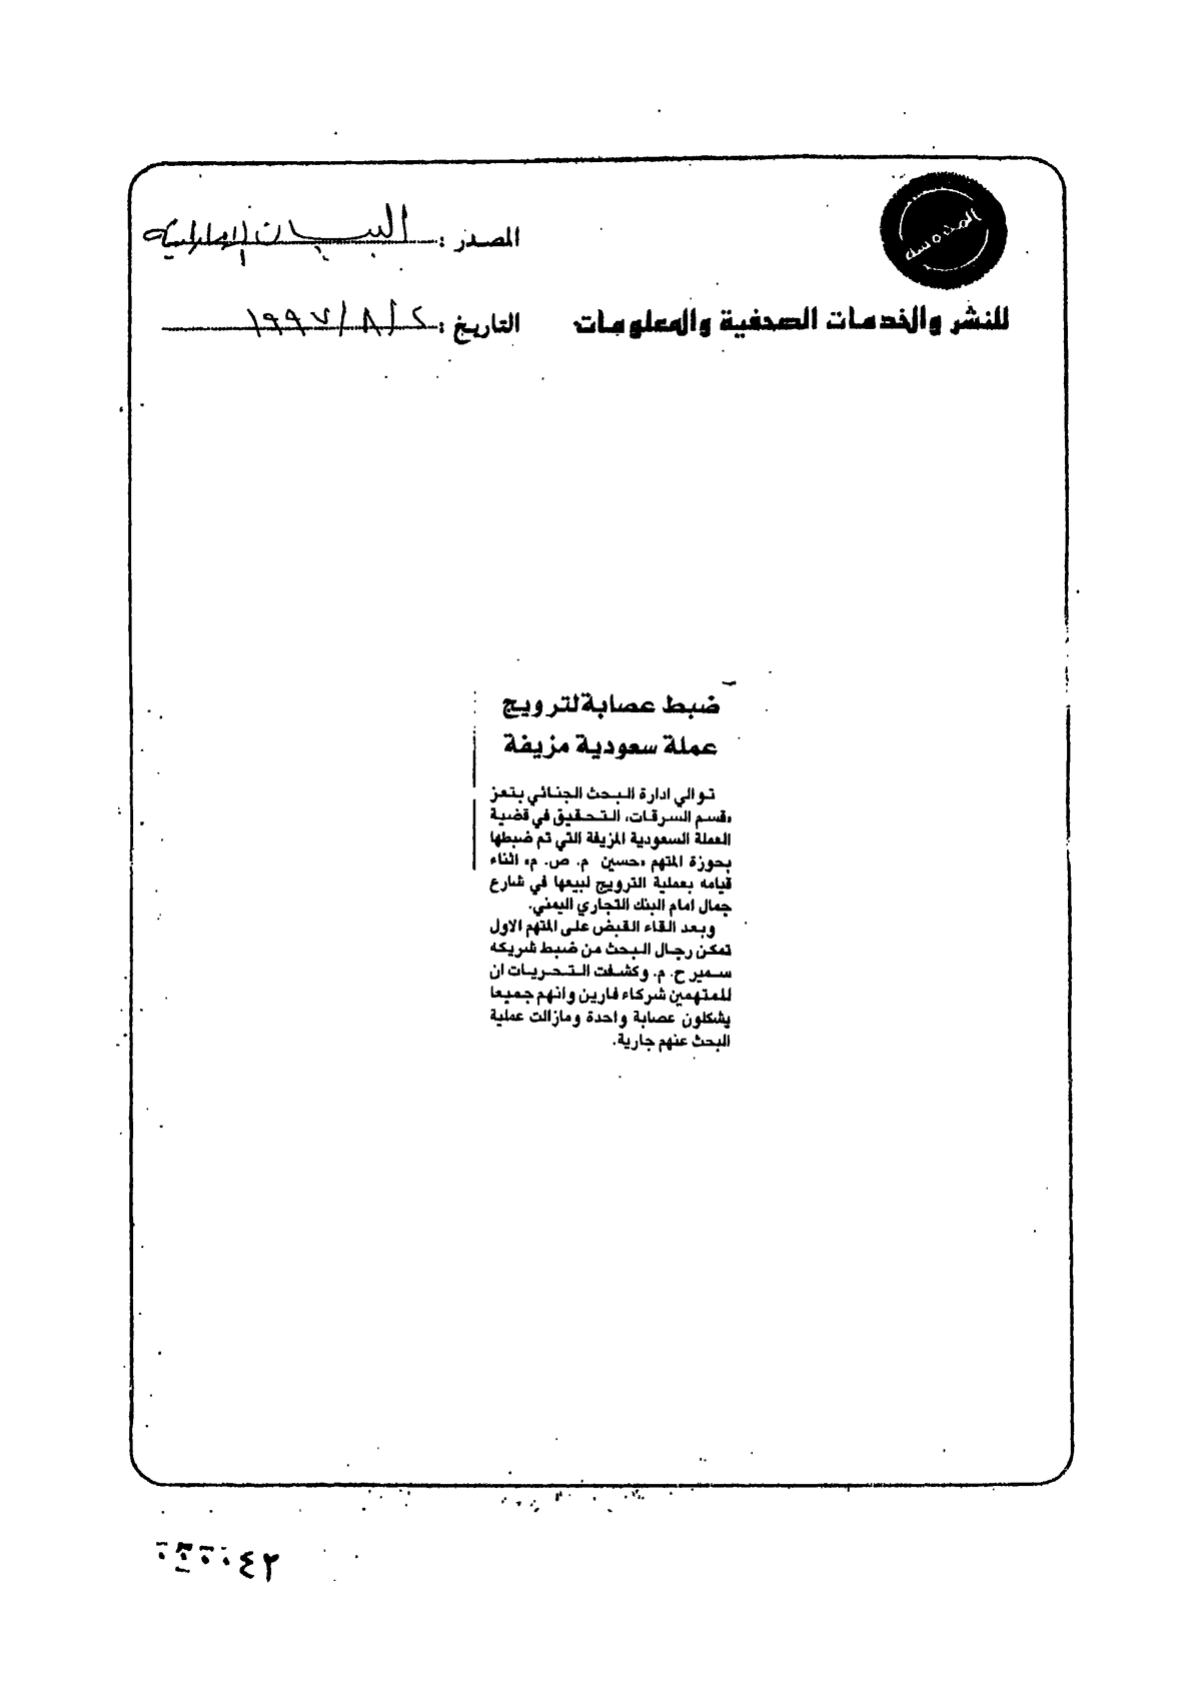 المصدر : البيان الإماراتية
للنشر والخدمات الصحفية والمعلومات
التاريخ : ٢ / ٨ / ١٩٩٧
ضبط عصابة لترويج
عملة سعودية مزيفة
توالي ادارة البحث الجنائي بتعز
«قسم السرقات» التحقيق في قضية
العملة السعودية المزيفة التي تم ضبطها
بحوزة المتهم «حسين م. ص. م» اثناء
قيامه بعملية الترويج لبيعها في شارع
جمال امام البنك التجاري اليمني.
وبعد القاء القبض على المتهم الاول
تمكن رجال البحث من ضبط شريكه
سمير ح. م. وكشفت التحريات ان
للمتهمين شركاء فارين وانهم جميعا
يشكلون عصابة واحدة ومازالت عملية
البحث عنهم جارية.